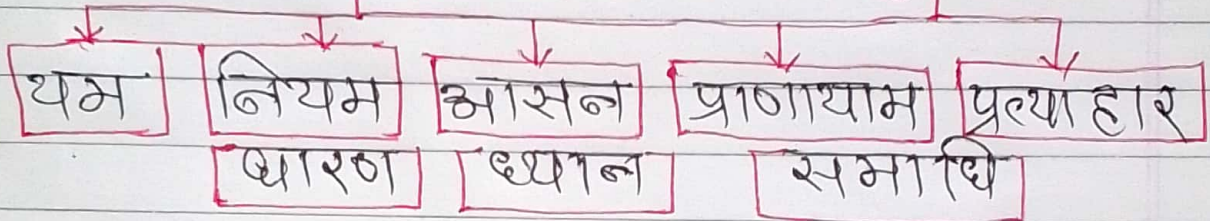 यम नियम आसन प्राणायाम प्रत्याहार
धारण ध्यान समाधि